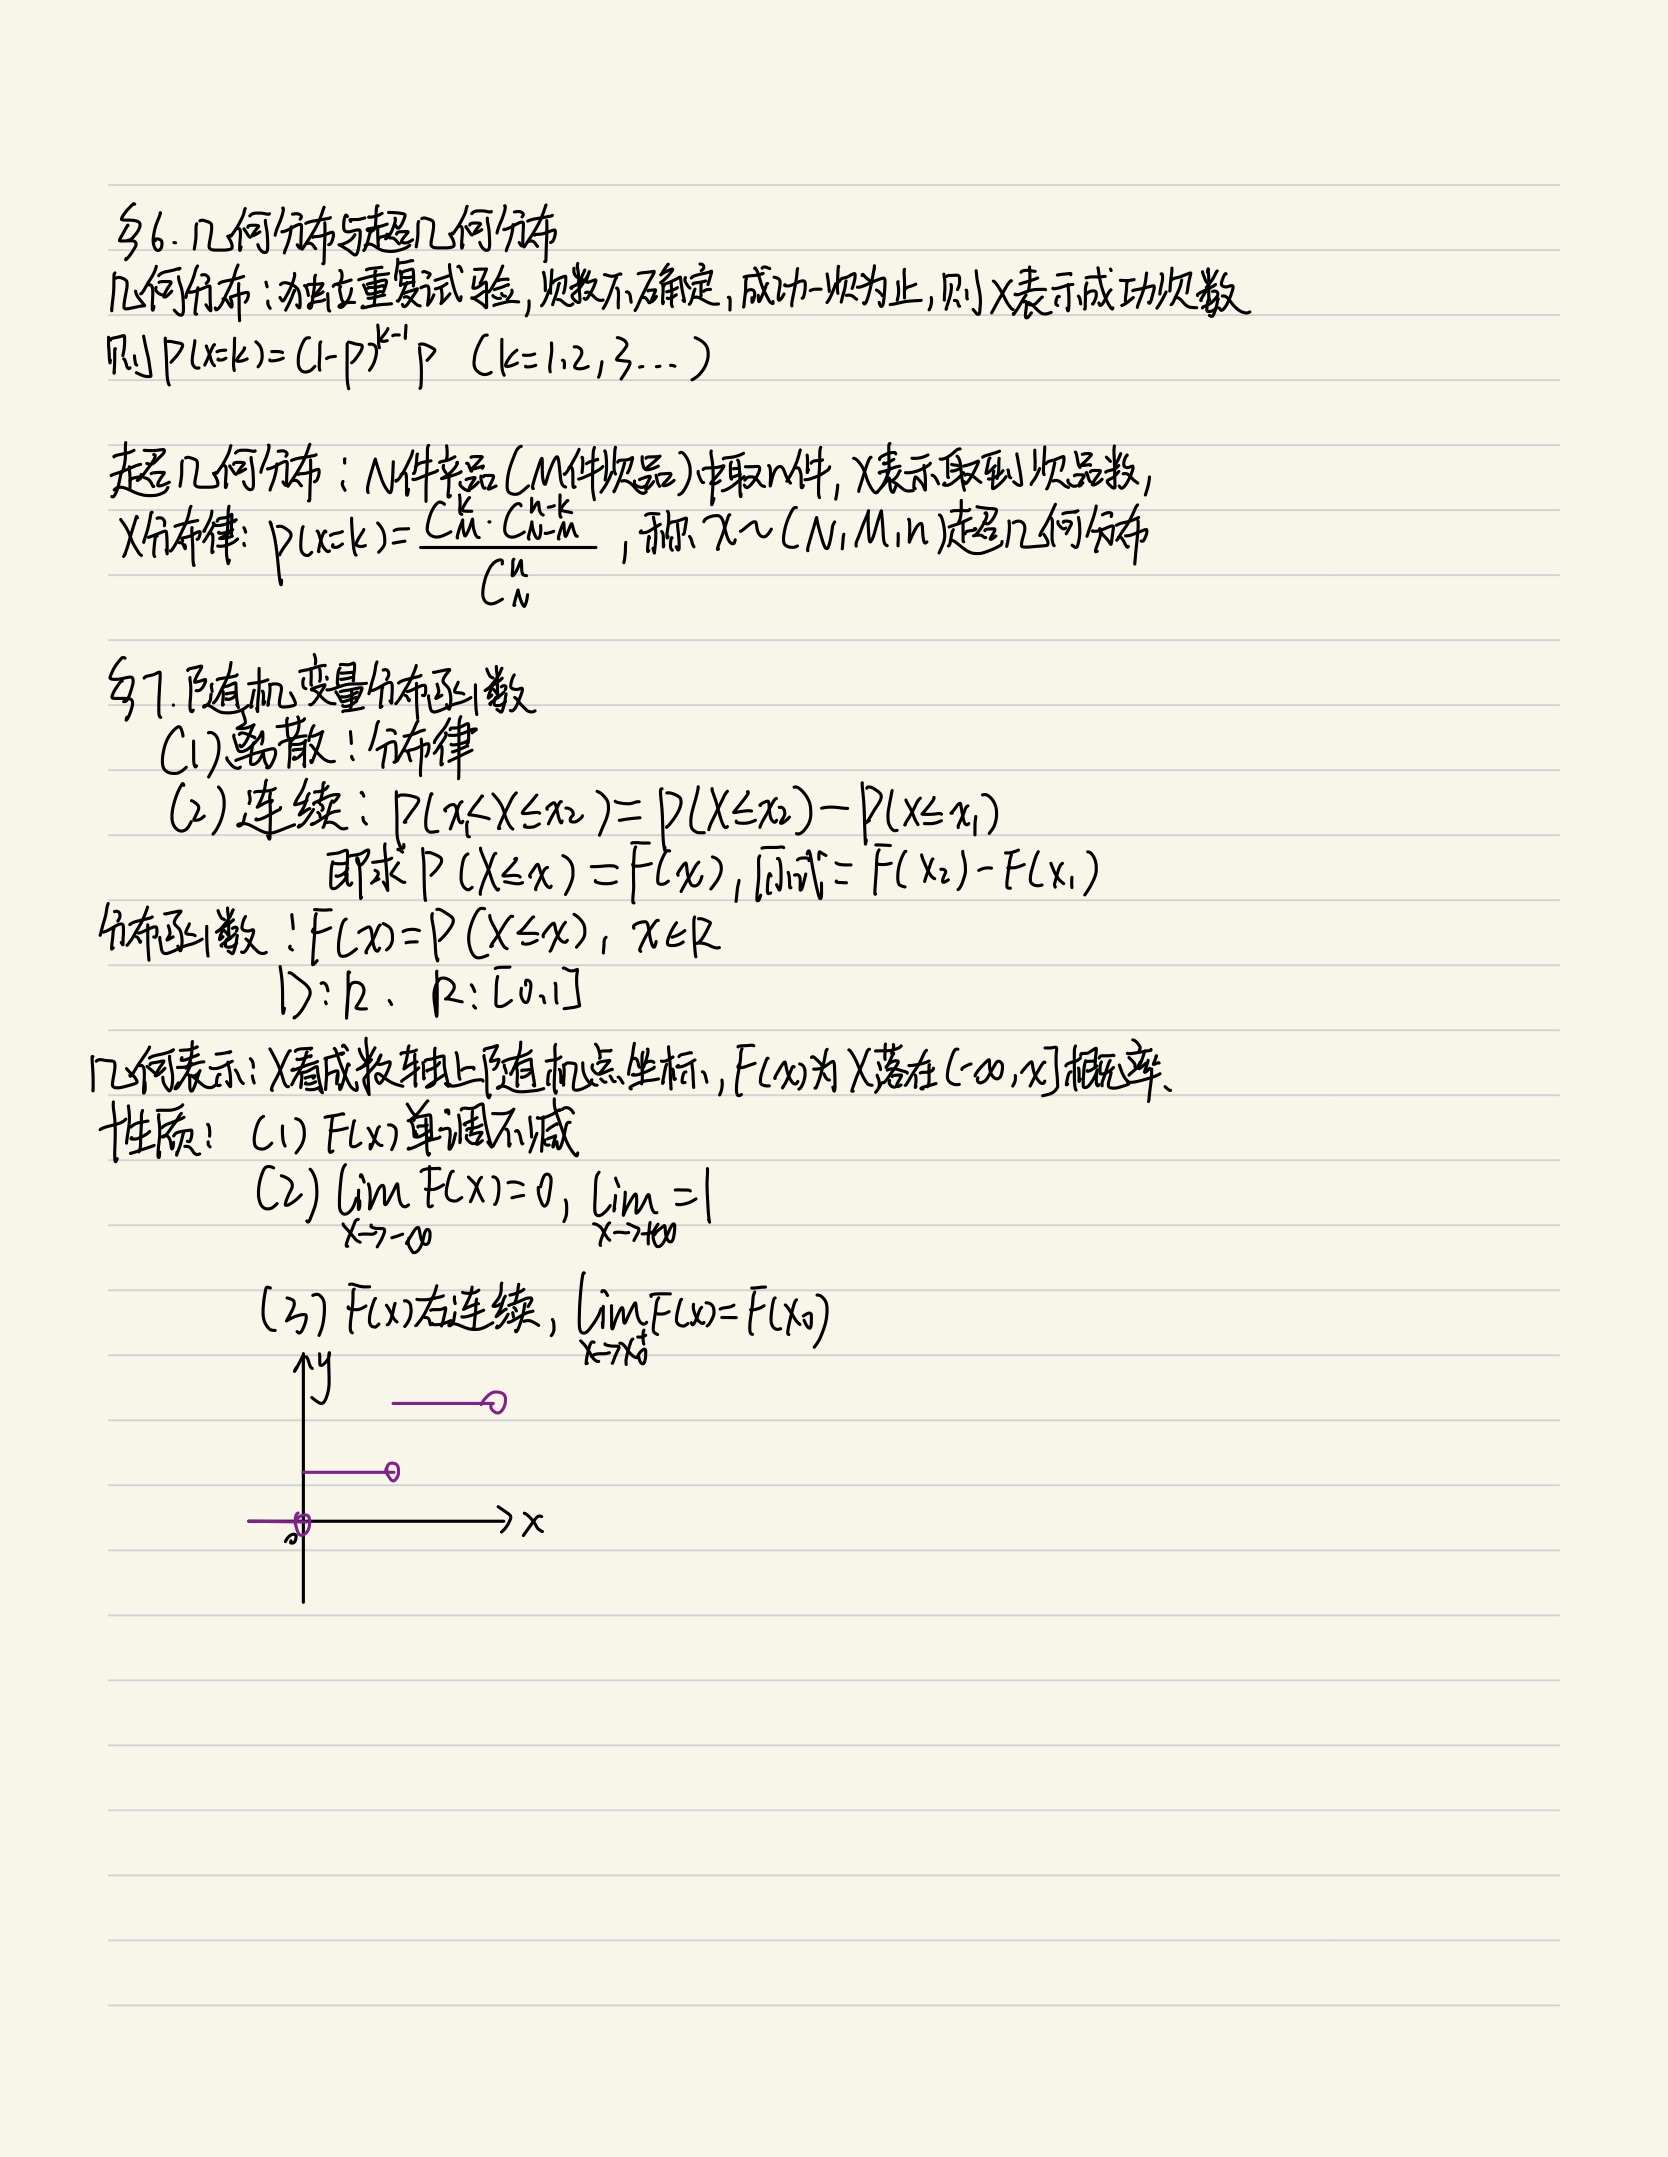 §6.几何分布与超几何分布
几何分布:独立重复试验,次数不确定,成功一次为止,则X表示成功次数
则P(X=k)=(1-p)^{k-1}p (k=1,2,3...)
超几何分布:N件产品(M件次品)中取n件,X表示取到次品数,
X分布律:P(X=k)=\frac{C_M^k·C_{N-M}^{n-k}}{C_N^n},称X~(N,M,n)超几何分布
§7.随机变量分布函数
(1)离散:分布律
(2)连续:P(x₁<X≤x₂)=P(X≤x₂)-P(X≤x₁)
即求P(X≤x)=F(x),原式=F(x₂)-F(x₁)
分布函数:F(x)=P(X≤x),x∈R
D:R、R:[0,1]
几何表示:X看成数轴上随机点坐标,F(x)为X落在(-∞,x]概率、
性质:(1)F(x)单调不减
(2)\lim_{x→-∞}F(x)=0,\lim_{x→+∞}=1
(3)F(x)右连续,\lim_{x→x_0^+}F(x)=F(x₀)
y
x
0